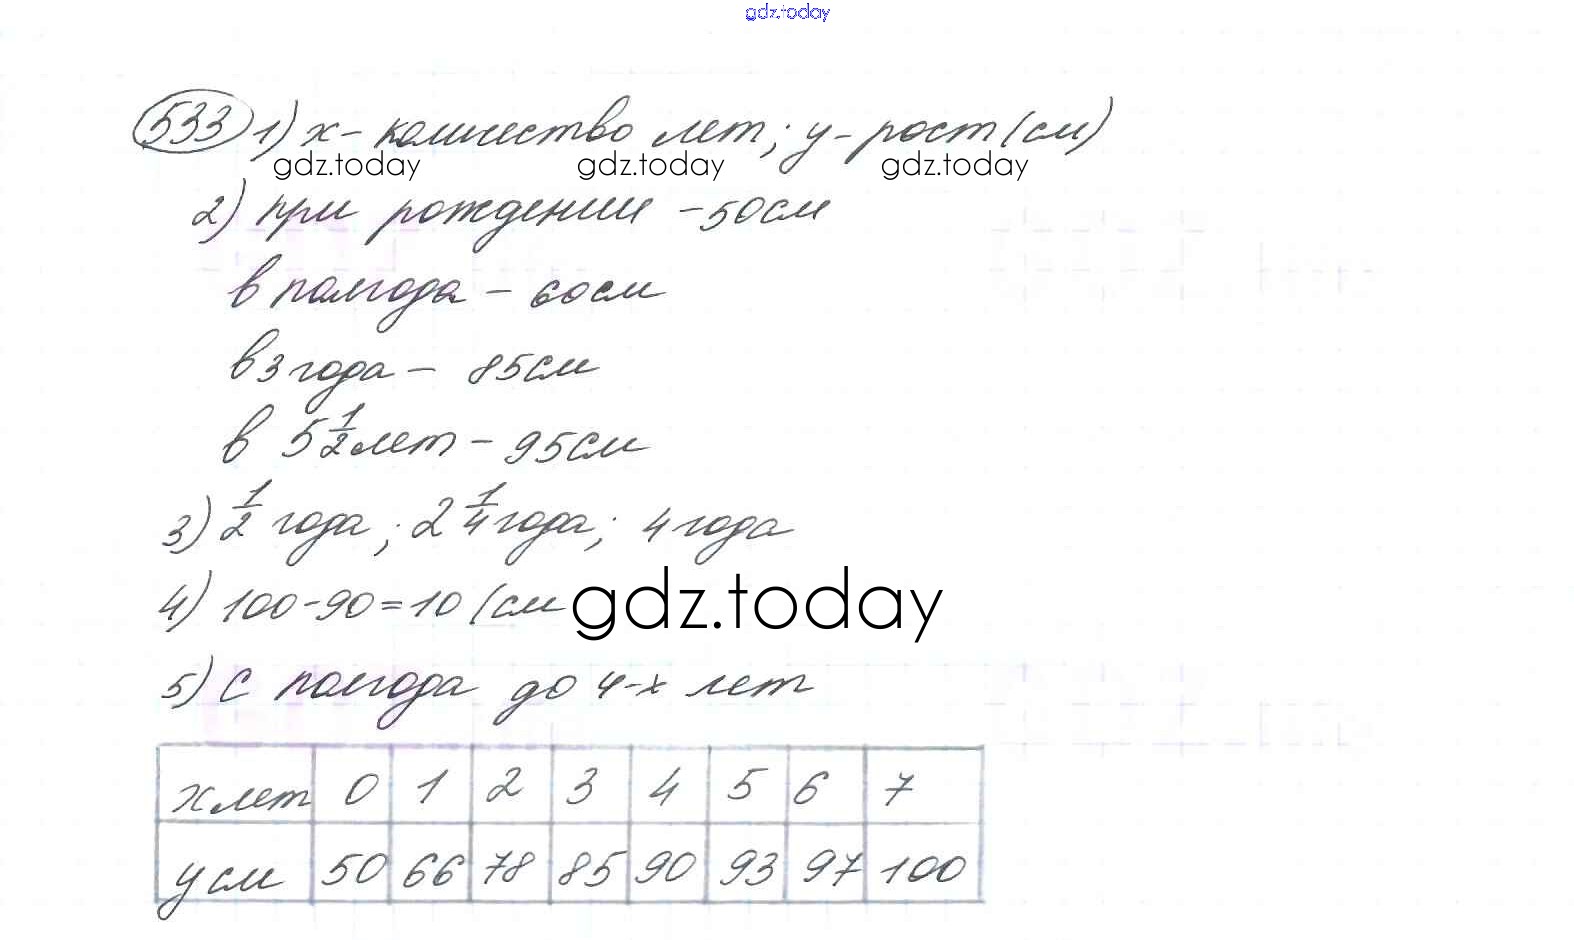 gdz.today
533 1) x - количество лет; y - рост (см)
gdz.today gdz.today gdz.today
2) при рождении - 50 см
в полгода - 60 см
в 3 года - 85 см
в 5 1/2 лет - 95 см
3) 1/2 года; 2 1/4 года; 4 года
4) 100 - 90 = 10 (см
gdz.today
5) с полгода до 4-х лет
x лет 0 1 2 3 4 5 6 7
y см 50 66 78 85 90 93 97 100